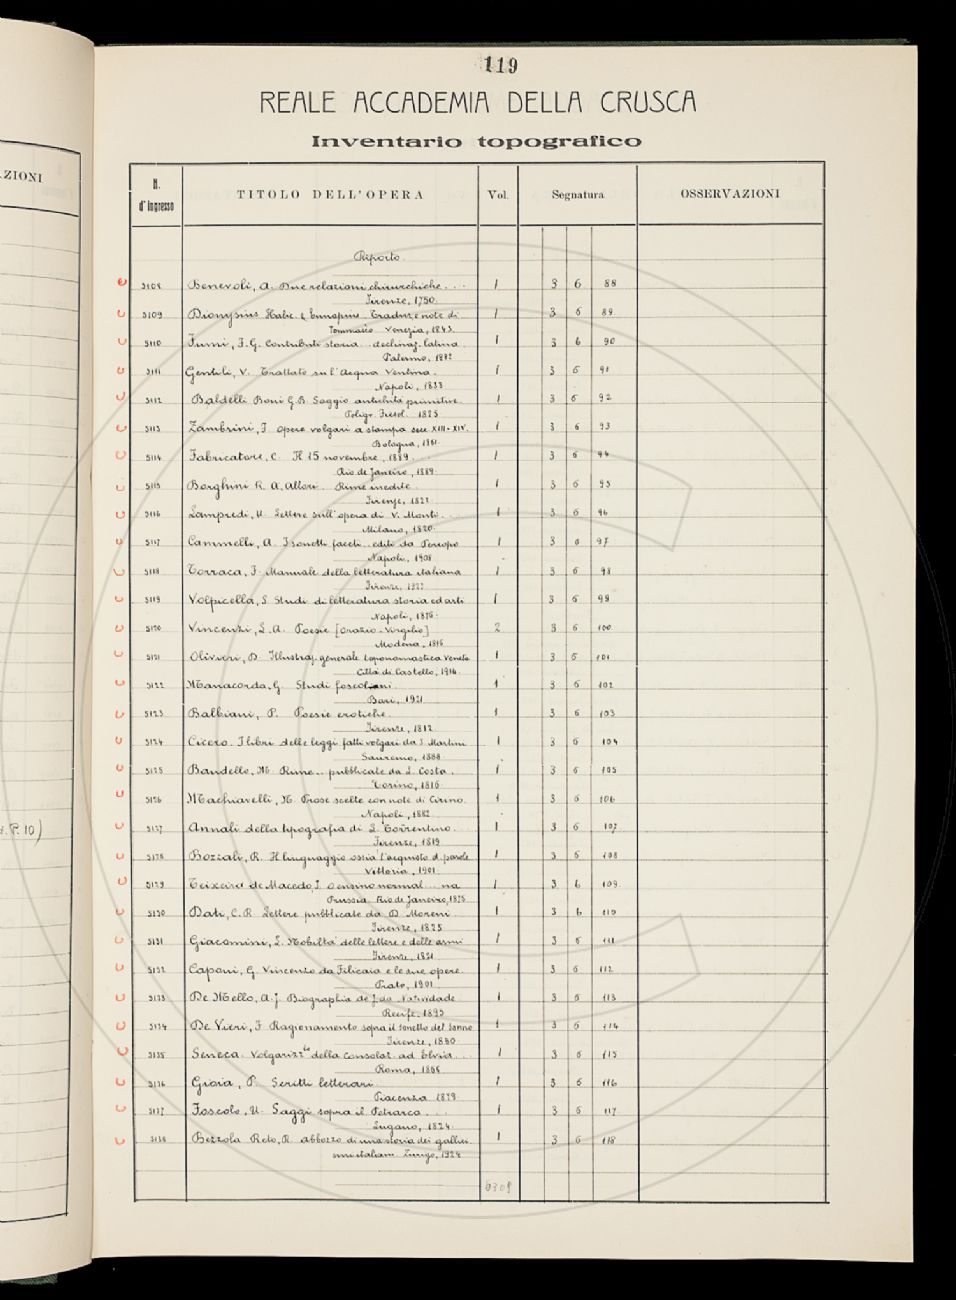 119
REALE ACCADEMIA DELLA CRUSCA
Inventario topografico
AZIONI
N. d'ingresso TITOLO DELL'OPERA Vol. Segnatura OSSERVAZIONI
Riporto
5108 Benevoli, A. Due relazioni chirurchiche... 1 3 6 88
Firenze, 1750.
5109 Dionysius Halic. e Eunapius. Traduz. e note di 1 3 6 89
Tommaseo Venezia, 1843.
5110 Fumi, F.G. Contributi storia declinaz. latina. 1 3 6 90
Palermo, 1882
5111 Gentili, V. Trattato sul'Acqua Ventina. 1 3 6 91
Napoli, 1833
5112 Baldelli Boni G.B. Saggio antichità primitive. 1 3 6 92
Poligr. Fiesol. 1825
5113 Zambrini, F. Opere volgari a stampa sec. XIII-XIV. 1 3 6 93
Bologna, 1861.
5114 Fabricatore, C. Il 15 novembre, 1889... 1 3 6 94
Rio de Janeiro, 1889.
5115 Borghini R. A. Allori. Rime inedite. 1 3 6 95
Firenze, 1822.
5116 Lampredi, U. Lettere sull'opera di V. Monti... 1 3 6 96
Milano, 1820.
5117 Cammelli, A. I sonetti faceti.. editi da Percopo 1 3 6 97
Napoli, 1908
5118 Torraca, F. Manuale della letteratura italiana 1 3 6 98
Firenze,
5119 Volpicella, S. Studi di letteratura storia ed arti 1 3 6 99
Napoli, 1876.
5120 Vincenzi, L.A. Poesie [Orazio-Virgilio] 2 3 6 100
Modena,
5121 Olivieri, D. Illustraz. generale toponomastica Veneta 1 3 6 101
Città di Castello, 1914.
5122 Manacorda, G. Studi foscoliani. 1 3 6 102
Bari, 1921
5123 Balbiani, P. Poesie erotiche. 1 3 6 103
Firenze, 1812.
5124 Cicero. I libri delle leggi fatti volgari da S. Martini 1 3 6 104
Sanremo, 1888.
5125 Bandello, M. Rime... pubblicate da L. Costa. 1 3 6 105
Torino, 1816
5126 Machiavelli, N. Prose scelte con note di Cirino. 1 3 6 106
Napoli, 1882.
5127 Annali della tipografia di L. Torrentino. 1 3 6 107
Firenze, 1819
5128 Bozzali, R. Il linguaggio ossia l'acquisto d. parole 1 3 6 108
Vittoria, 1901
5129 Teixeira de Macedo, J. O ensino normal... na 1 3 6 109
Prussia Rio de Janeiro, 1875
5130 Dati, C.R. Lettere pubblicate da D. Moreni 1 3 6 110
Firenze, 1825.
5131 Giacomini, L. Nobiltà delle lettere e delle armi 1 3 6 111
Firenze, 1821
5132 Caponi, G. Vincenzo da Filicaia e le sue opere. 1 3 6 112
Prato, 1901.
5133 De Mello, A.J. Biographia de J. da Natividade 1 3 6 113
Recife, 1895
5134 De Vieri, F. Ragionamento sopra il sonetto del Sonno 1 3 6 114
Firenze,
5135 Seneca. Volgarizz.to della Consolaz. ad Elvia... 1 3 6 115
Roma,
5136 Gioia, P. Scritti letterari 1 3 6 116
Piacenza
5137 Foscolo, U. Saggi sopra il Petrarca... 1 3 6 117
Lugano, 1824.
5138 Bezzola Reto, R. Abbozzo di una storia dei gallici. 1 3 6 118
smi italiani. Zurigo, 1924
P. 10)
6309